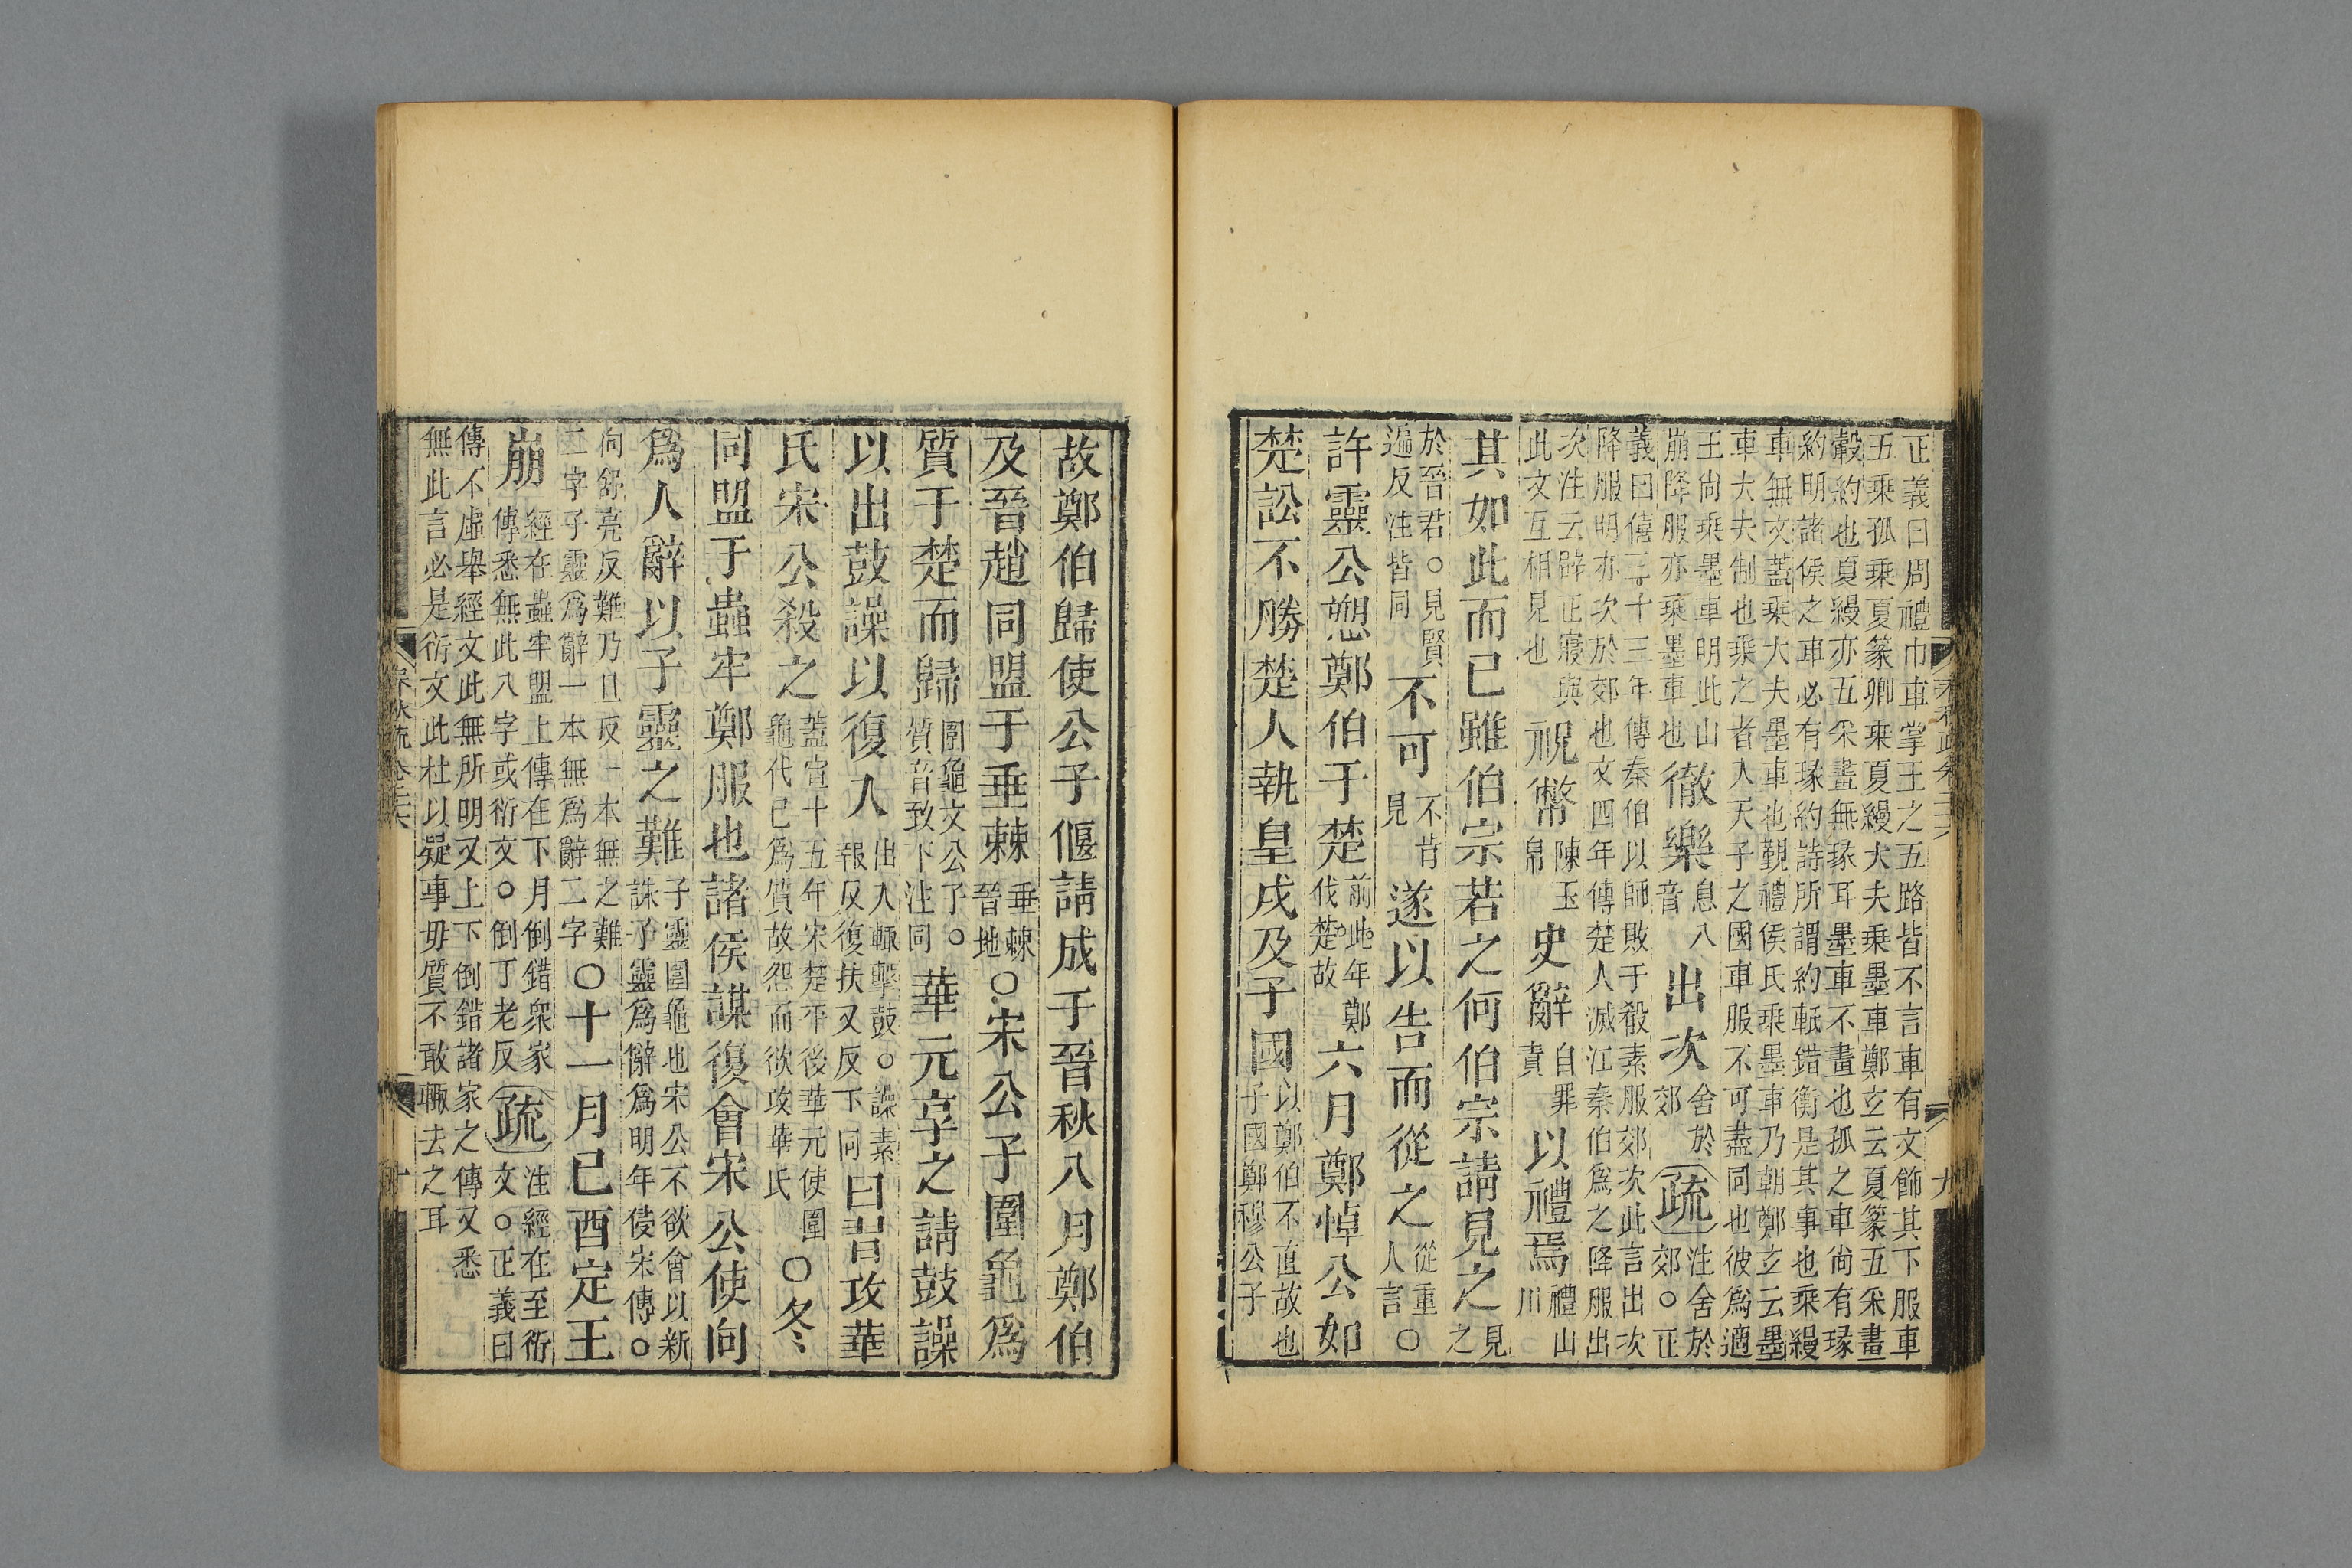 正義曰周禮巾車掌王之五路皆不言車有文飾其下服車
五乘孤乘夏篆卿乘夏縵大夫乘墨車鄭玄云夏篆五采畫
轂約也夏縵亦五采畫無瑑耳墨車不畫也孤之車尚有瑑
約明諸侯之車必有瑑約詩所謂約軝錯衡是其事也乘縵
車無文蓋乘大夫墨車也覲禮侯氏乘墨車乃朝鄭玄云墨
車大夫制也乘之者入天子之國車服不可盡同也彼為適
王尚乘墨車明此山
崩降服亦乘墨車也
徹樂
息八
音
出次
舍於
郊
疏
注舍於
郊○正
義曰僖三十三年傳秦伯以師敗于殽素服郊次此言出次
降服明亦次於郊也文四年傳楚人滅江秦伯為之降服出
次注云辟正寢與
此文互相見也
祝幣
陳玉
帛
史辭
自罪
責
以禮焉
禮山
川
其如此而已雖伯宗若之何伯宗請見之
見
之
於晉君○見賢
遍反注皆同
不可
不肯
見
遂以告而從之
從重
人言
○
許靈公愬鄭伯于楚
前此年鄭
伐楚故
六月鄭悼公如
楚訟不勝楚人執皇戌及子國
以鄭伯不直故也
子國鄭穆公子
故鄭伯歸使公子偃請成于晉秋八月鄭伯
及晉趙同盟于垂棘
垂棘
晉地
○宋公子圍龜為
質于楚而歸
圍龜文公子○
質音致下注同
華元享之請鼓譟
以出鼓譟以復入
出入輒擊鼓○譟素
報反復扶又反下同
曰習攻華
氏宋公殺之
蓋宣十五年宋楚平後華元使圍
龜代己為質故怨而欲攻華氏
○冬
同盟于蟲牢鄭服也諸侯謀復會宋公使向
為人辭以子靈之難
子靈圍龜也宋公不欲會以新
誅子靈為辭為明年侵宋傳○
向舒亮反難乃旦反一本無之難
二字子靈為辭一本無為辭二字
○十一月己酉定王
崩
經在蟲牢盟上傳在下月倒錯眾家
傳悉無此八字或衍文○倒丁老反
疏
注經在至衍
文○正義曰
傳不虛舉經文此無所明又上下倒錯諸家之傳又悉
無此言必是衍文此杜以疑事毋質不敢輒去之耳